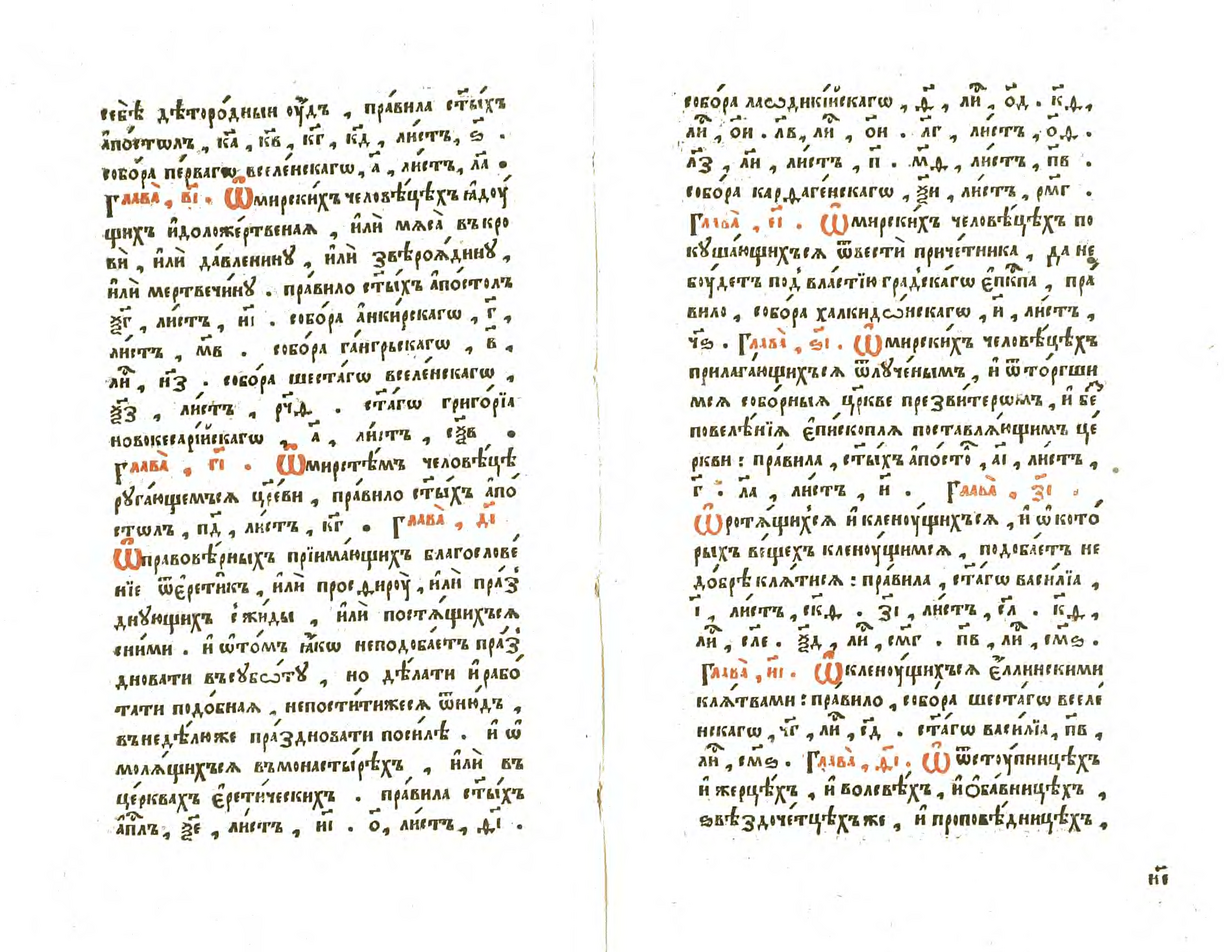 себѐѣ дѣторо́дныи оу҆́дъ , пра́вила ст҃ы́хъ
а҆по́столъ , к҃а , к҃в , к҃г , к҃д , ли́стъ , ѕ҃ .
собо́ра пе́рвагѡ вселе́нскагѡ , а҃ , ли́стъ , л҃а .
Глава̀ , в҃і . Ѿмирски́хъ человѣ́цѣхъ ꙗ҆доу́
щихъ и҆доложе́ртвеная , и҆лѝ мѧ́са въкро
вѝ , и҆лѝ да́вленинꙋ , и҆лѝ ѕвѣроѧ́динꙋ ,
и҆лѝ мертвечи́нꙋ . пра́вило ст҃ы́хъ а҆по́столъ
ѯ҃г , ли́стъ , н҃і . собо́ра а҆нки́рскагѡ , г҃ ,
ли́стъ , м҃в . собо́ра га́нгрьскагѡ , в҃ ,
ли́ , н҃з . собо́ра шеста́гѡ вселе́нскагѡ ,
ѯ҃з , ли́стъ , рч҃ѳ . ст҃а́гѡ григо́рїа
новокесарі́йскагѡ , а҃ , ли́стъ , сѯ҃в .
Глава̀ , г҃і . Ѿмирстѣ́мъ человѣ́цѣ
руга́ющемъсѧ цр҃кви , пра́вило ст҃ы́хъ а҆по́
столъ , п҃д , ли́стъ , к҃г . Глава̀ , д҃і
Ѿправовѣ́рныхъ прїима́ющихъ благослове́
нїе ѿе҆рети́къ , и҆лѝ просѳироу̀ , и҆лѝ пра́з
днꙋющихъ с жиды̀ , и҆лѝ постѧ́щихъсѧ
сни́ми . и҆ ѡ҆то́мъ ꙗ҆́кѡ неподоба́етъ пра́з
дновати въсꙋбѡ́тꙋ , но дѣ́лати и҆ рабо́
тати подо́бная , непости́тижесѧ ѿню́дъ ,
въне́дѣлюже пра́здновати поси́лѣ . и҆ ѡ҆
молѧ́щихъсѧ въмонастырѣ́хъ , и҆лѝ въ
це́рквахъ є҆рети́ческихъ . пра́вила ст҃ы́хъ
а҆пл҃ъ , ѯ҃е , ли́стъ , н҃і . о҃ , ли́стъ , ѳ҃і .
собо́ра лаѡдикі́искагѡ , ѳ҃ , ли́ , о҃д . к҃ѳ ,
ли́ , о҃и . л҃в , ли́ , о҃и . л҃г , ли́стъ , о҃ѳ .
л҃з , ли , ли́стъ , п҃ . м҃ѳ , ли́стъ , п҃в .
собо́ра карѳаге́нскагѡ , ѯ҃и , ли́стъ , рм҃г .
Глава̀ , е҃і . Ѿмирски́хъ человѣ́цѣхъ по
куша́ющихъсѧ ѿвестѝ приче́тника , да не
боу́детъ под̾ вла́стїю гра́дскагѡ є҆пк҃па , пра́
вило , собо́ра халкидѡ́нскагѡ , и҃ , ли́стъ ,
ч҃ѕ . Глава̀ , ѕ҃і . Ѿмирски́хъ человѣ́цѣхъ
прилага́ющихъсѧ ѿлу́ченымъ , и҆ ѿто́ргши
мсѧ собо́рныѧ цр҃кве презви́терѡмъ , и҆ бе
повелѣ́нїѧ є҆пи́скоплѧ поставлѧ́ющимъ це́
ркви : пра́вила , ст҃ы́хъ а҆по́сто , а҃і , ли́стъ ,
г҃ . л҃а , ли́стъ , и҃ . Глава̀ , з҃і .
Ѿротѧ́щихсѧ и҆ кленоу́щихъсѧ , и҆ ѡ҆ кото́
рыхъ ве́щехъ кленоу́щимсѧ , подоба́етъ не
до́брѣ клѧ́тисѧ : пра́вила , ст҃а́гѡ васи́лїа ,
і҃ , ли́стъ , ск҃ѳ . з҃і , ли́стъ , с҃л . к҃ѳ ,
ли́ , сл҃е . ѯ҃д , ли́ , см҃г . п҃в , ли́ , см҃ѕ .
Глава̀ , и҃і . Ѿкленоу́щихъсѧ є҆́ллинскими
клѧ́твами : пра́вило , собо́ра шеста́гѡ вселе́
нскагѡ , ч҃г , ли́ , с҃д . ст҃а́гѡ васи́лїа , п҃в ,
ли́ , см҃ѕ . Глава̀ , ѳ҃і . Ѡ ѿстоу́пницѣхъ
и҆ жерцѣ́хъ , и҆ волсвѣ́хъ , и҆ ѻ҆ба́вницѣхъ ,
ѕвѣздоче́тцѣхъ же , и҆ проповѣ́дницѣхъ ,
к҃е